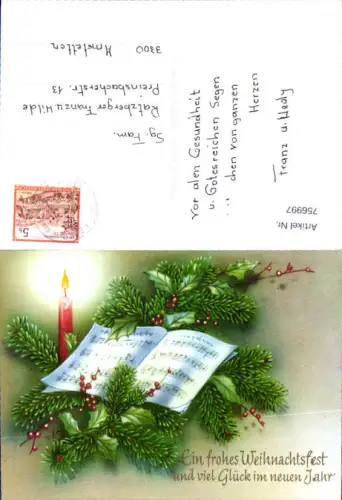 vor allem Gesundheit
u. Gottesreichen Segen
... chen von ganzen
Herzen
Franz u. Hedy
Sg. Fam.
Ratzberger Franz u. Hilde
Preinsbacherstr. 13
3300 Amstetten
Artikel Nr.
756997
5 S
Ein frohes Weihnachtsfest
und viel Glück im neuen Jahr